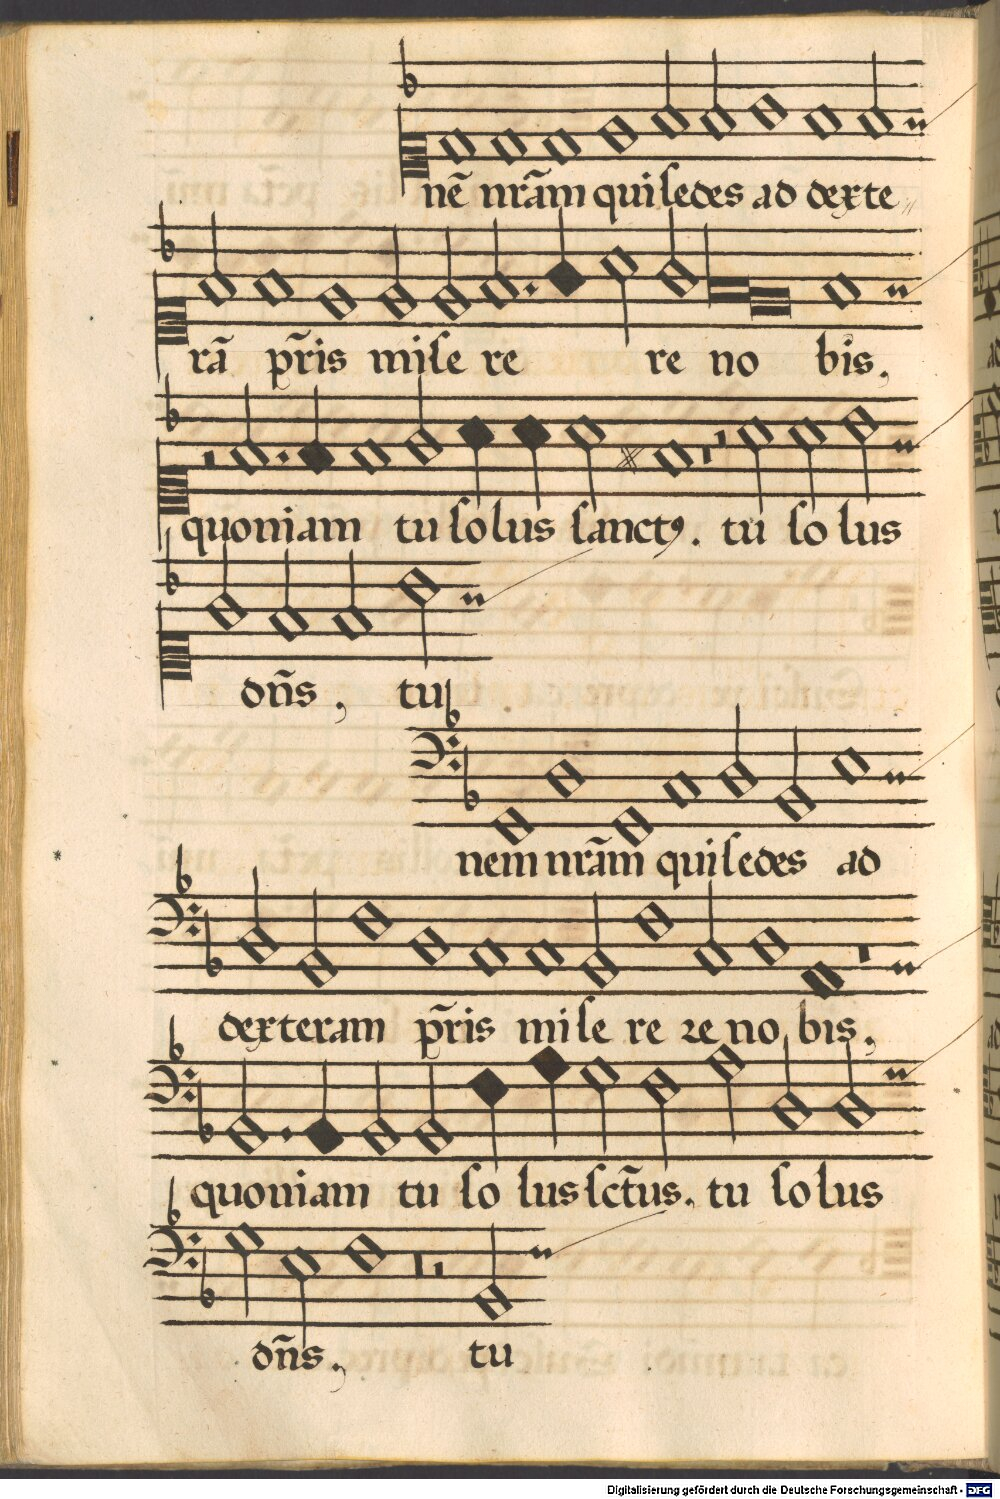 nē nr̄am qui sedes ad dexte
rā pr̄is mise re re no bis,
quoniam tu solus sanctꝰ. tu so lus
dn̄s, tu
nem nr̄am qui sedes ad
dexteram pr̄is mise re re no bis,
quoniam tu so lus sct̄us. tu solus
dn̄s, tu
Digitalisierung gefördert durch die Deutsche Forschungsgemeinschaft - DFG